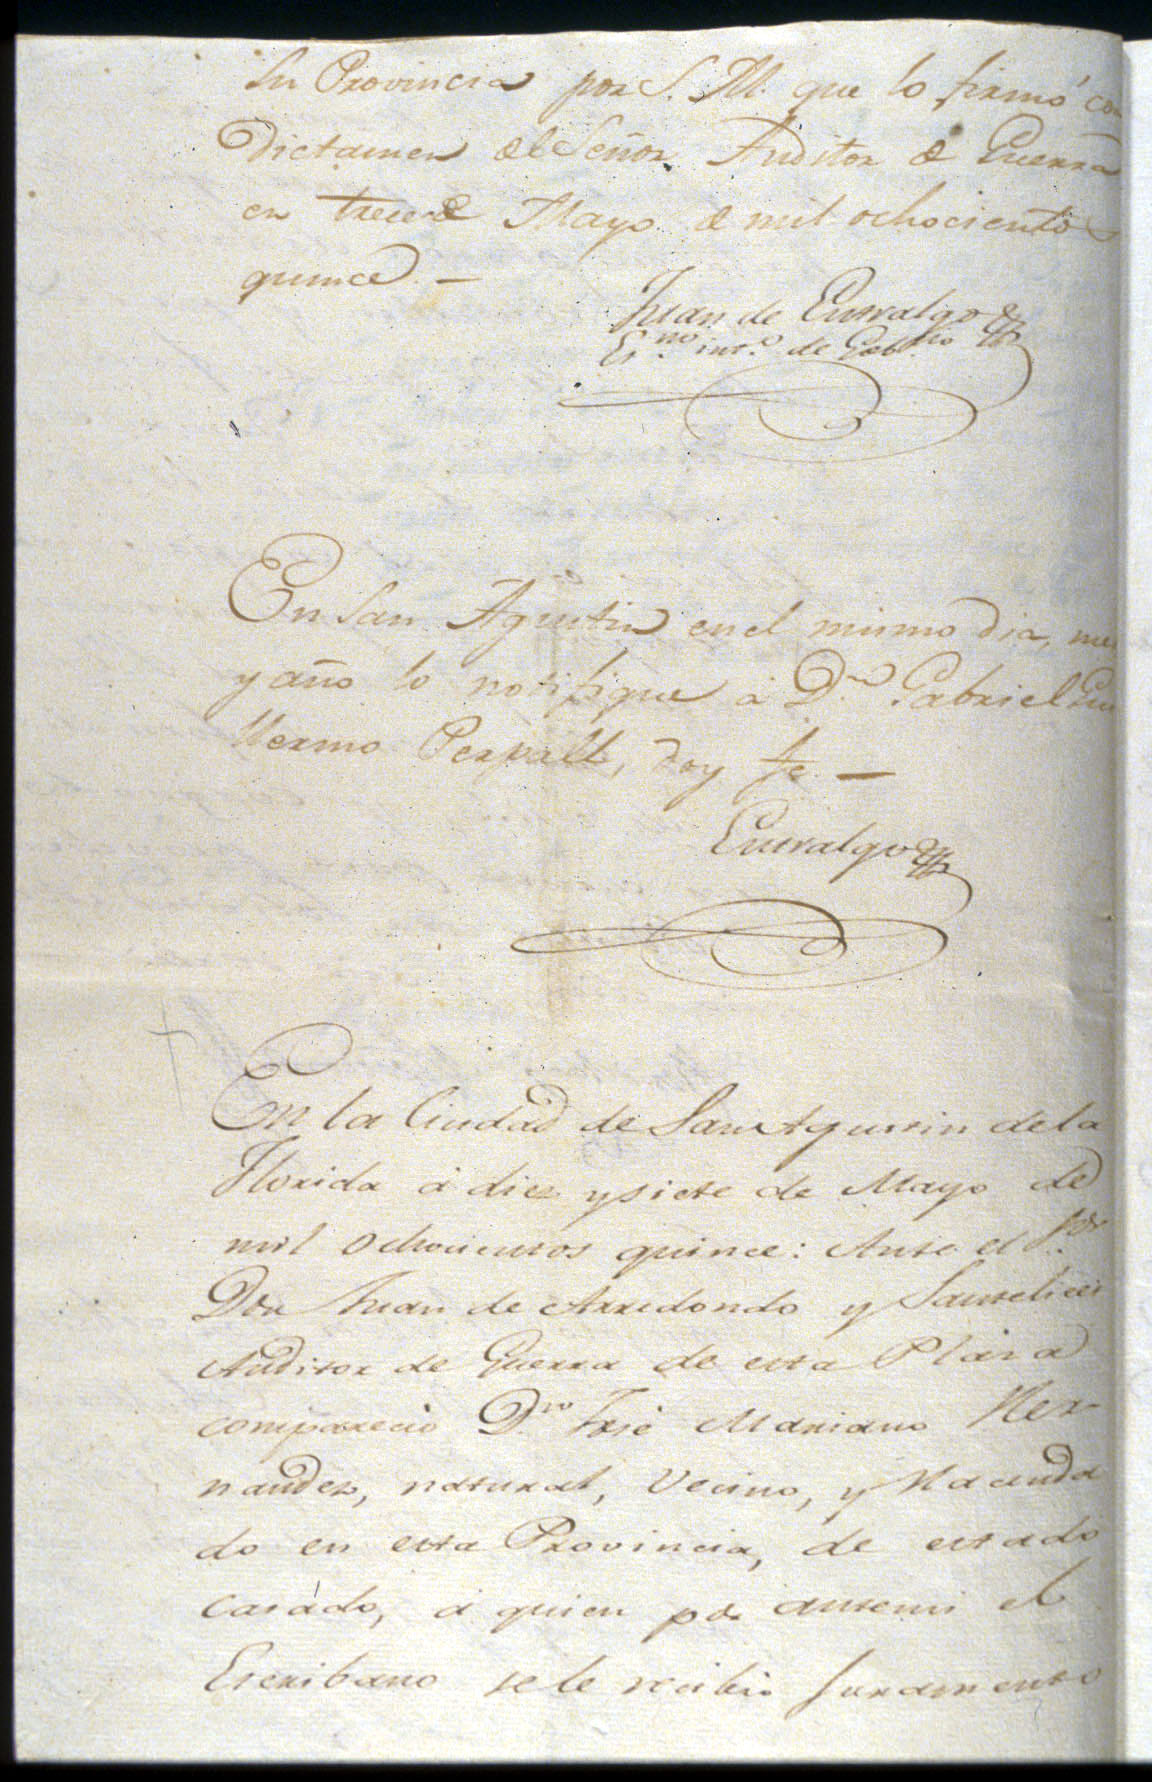 su Provincia por S. M. que lo firmó con
Dictamen del Señor Auditor de Guerra
en trece de Mayo de mil ochocientos
quince. —
Juan de Entralgo
Es.no int.o de Gob.no
En San Agustin en el mismo dia, mes
y año lo notifique á D.n Gabriel Gui
llermo Perpall, doy fe. —
Entralgo
En la Ciudad de San Agustin de la
Florida á diez y siete de Mayo de
mil ochocientos quince: Ante el S.or
Don Juan de Arredondo y Santelices
Auditor de Guerra de esta Plaza
comparecio D.n José Mariano Her-
nandez, natural, Vecino, y Hacenda
do en esta Provincia, de estado
casado, á quien por antemi el
Escribano se le recibio Juramento